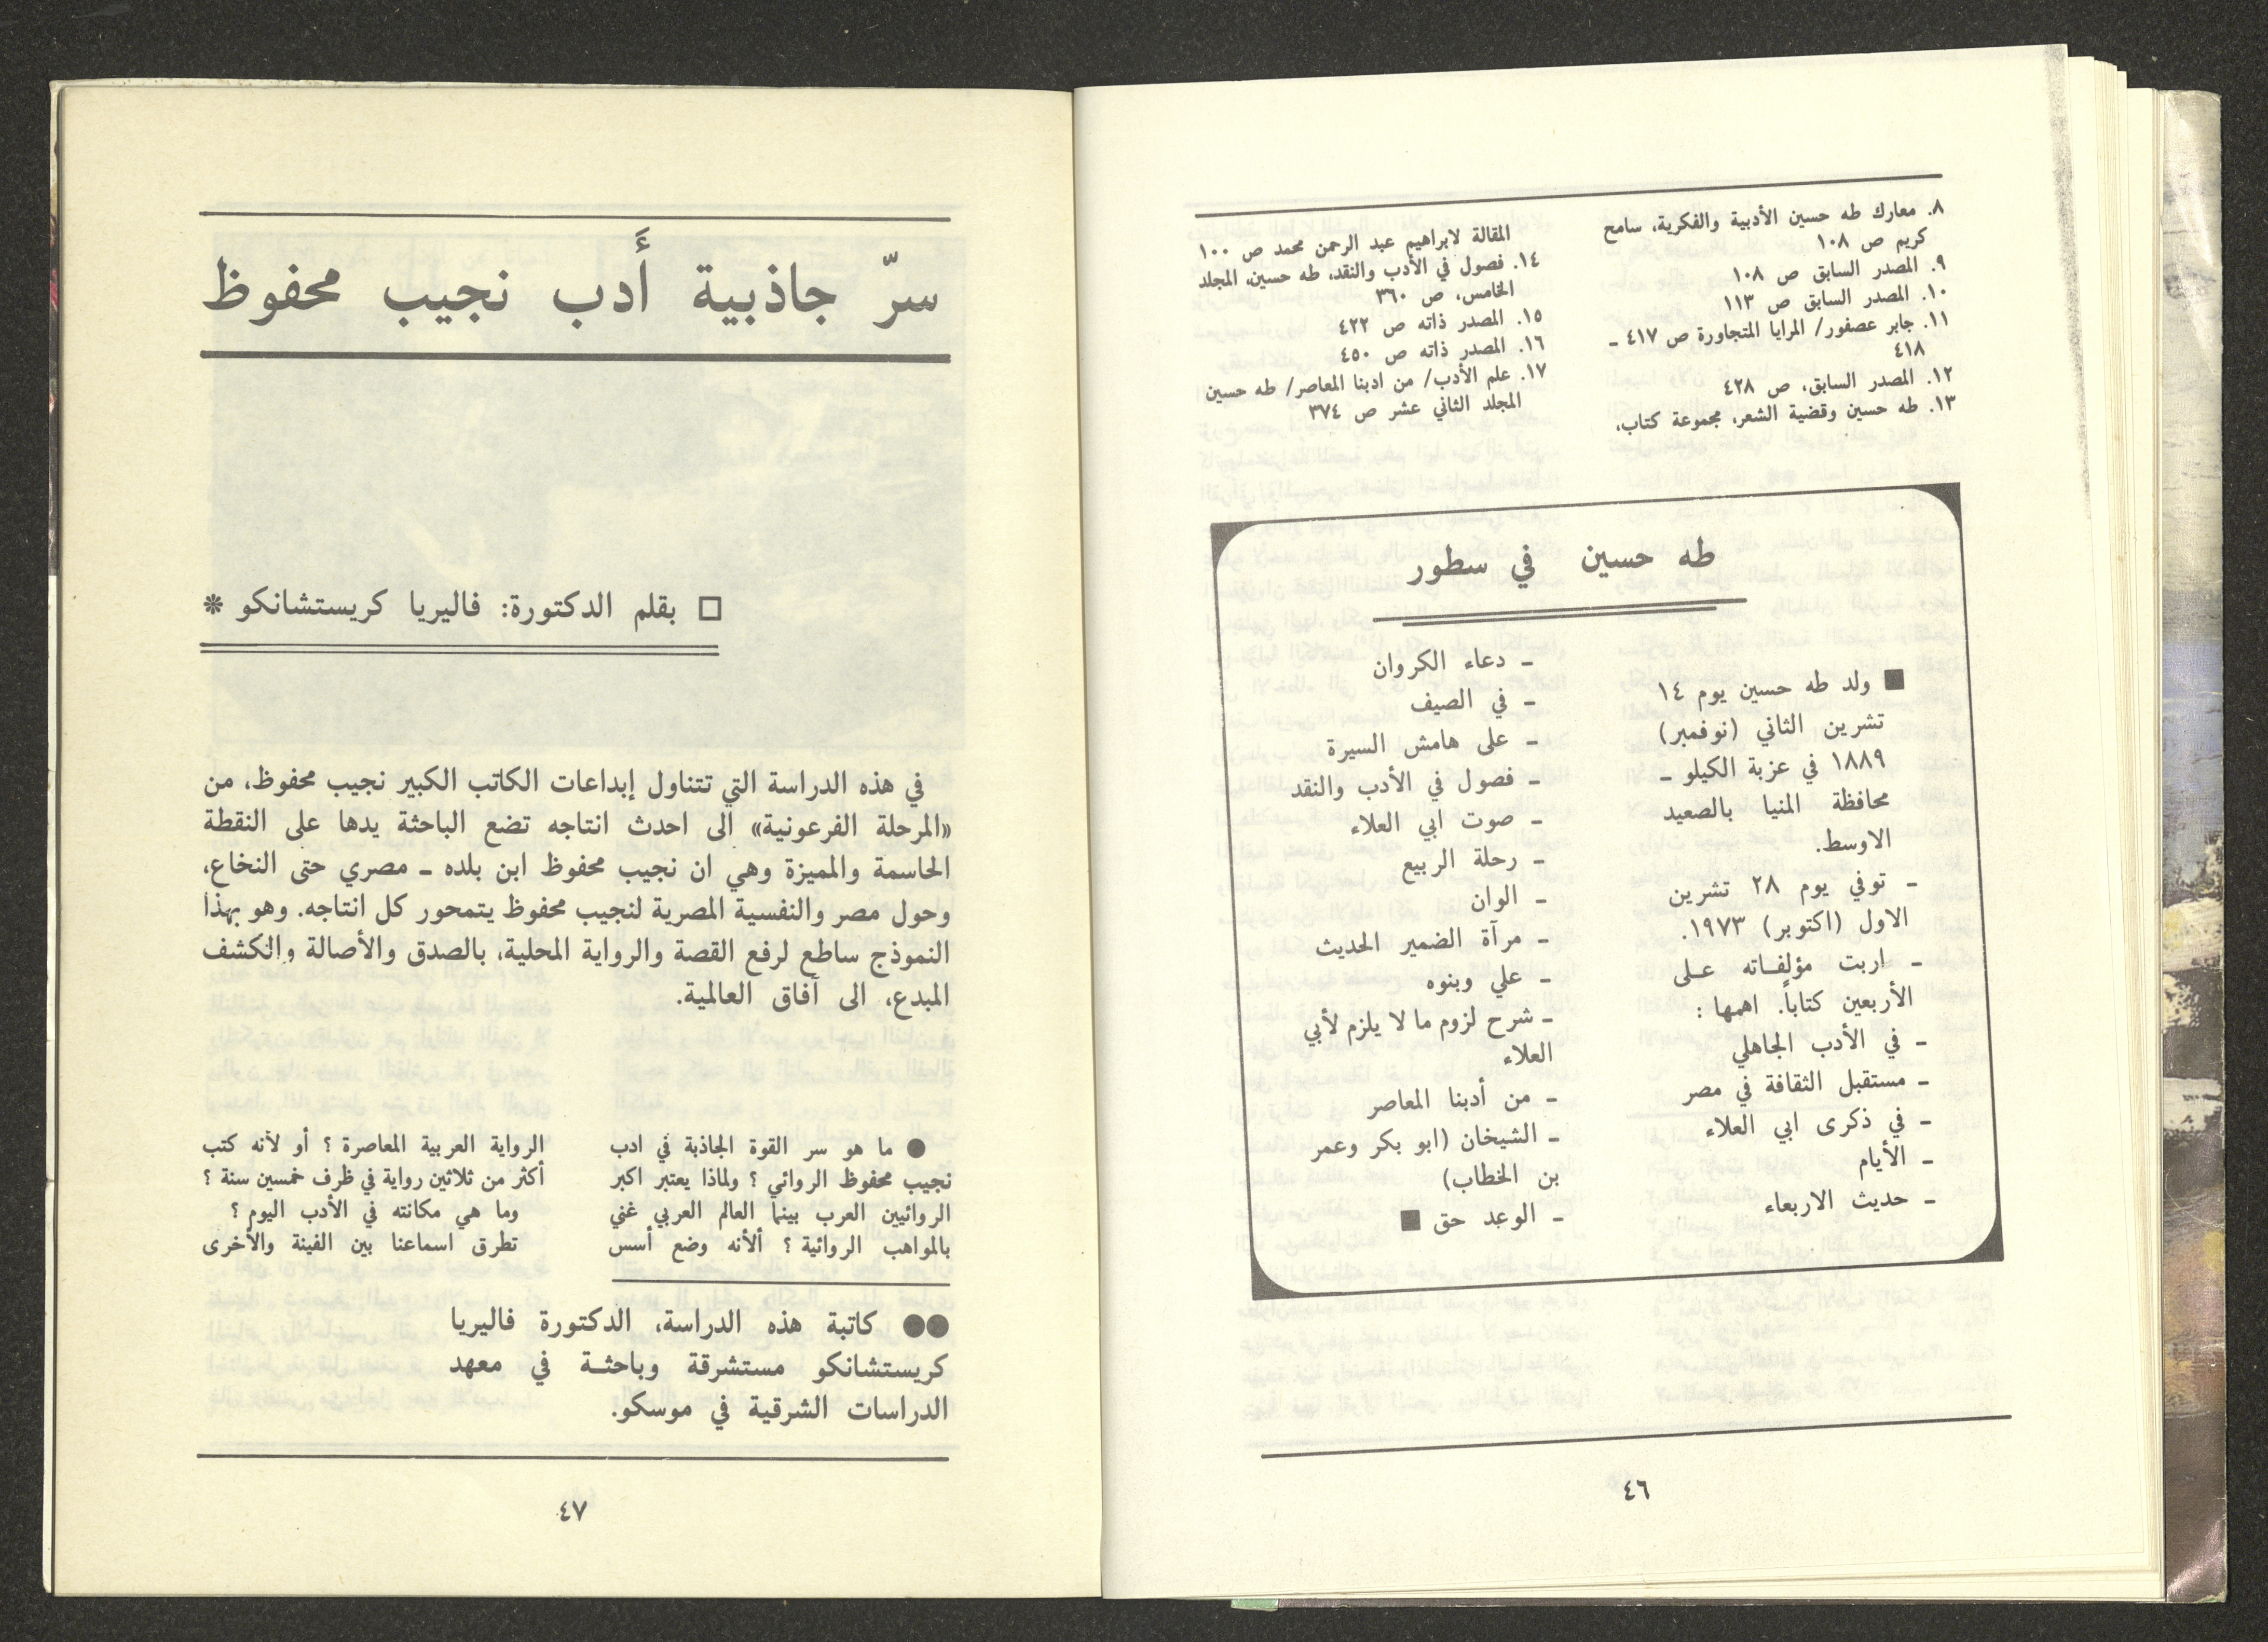 ٨. معارك طه حسين الأدبية والفكرية، سامح
كريم ص ١٠٨
٩. المصدر السابق ص ١٠٨
١٠. المصدر السابق ص ١١٣
١١. جابر عصفور/ المرايا المتجاورة ص ٤١٧ ـ
٤١٨
١٢. المصدر السابق، ص ٤٢٨
١٣. طه حسين وقضية الشعر، مجموعة كتاب،
المقالة لابراهيم عبد الرحمن محمد ص ١٠٠
١٤. فصول في الأدب والنقد، طه حسين، المجلد
الخامس، ص ٣٦٠
١٥. المصدر ذاته ص ٤٢٢
١٦. المصدر ذاته ص ٤٥٠
١٧. علم الأدب/ من ادبنا المعاصر/ طه حسين
المجلد الثاني عشر ص ٣٧٤
طه حسين في سطور
■ ولد طه حسين يوم ١٤
تشرين الثاني (نوفمبر)
١٨٨٩ في عزبة الكيلو ـ
محافظة المنيا بالصعيد
الاوسط.
ـ توفي يوم ٢٨ تشرين
الاول (اكتوبر) ١٩٧٣.
ـ اربت مؤلفـاته عـلى
الأربعين كتاباً. اهمها :
ـ في الأدب الجاهلي
ـ مستقبل الثقافة في مصر
ـ في ذكرى ابي العلاء
ـ الأيام
ـ حديث الاربعاء
ـ دعاء الكروان
ـ في الصيف
ـ على هامش السيرة
ـ فصول في الأدب والنقد
ـ صوت ابي العلاء
ـ رحلة الربيع
ـ الوان
ـ مرآة الضمير الحديث
ـ علي وبنوه
ـ شرح لزوم ما لا يلزم لأبي
العلاء
ـ من أدبنا المعاصر
ـ الشيخان (ابو بكر وعمر
بن الخطاب)
ـ الوعد حق ■
٤٦
سرّ جاذبية أَدب نجيب محفوظ
□ بقلم الدكتورة: فاليريا كريستشانكو *
في هذه الدراسة التي تتناول إبداعات الكاتب الكبير نجيب محفوظ، من
«المرحلة الفرعونية» الى احدث انتاجه تضع الباحثة يدها على النقطة
الحاسمة والمميزة وهي ان نجيب محفوظ ابن بلده ـ مصري حتى النخاع،
وحول مصر والنفسية المصرية لنجيب محفوظ يتمحور كل انتاجه. وهو بهذا
النموذج ساطع لرفع القصة والرواية المحلية، بالصدق والأصالة والكشف
المبدع، الى آفاق العالمية.
● ما هو سر القوة الجاذبة في ادب
نجيب محفوظ الروائي ؟ ولماذا يعتبر اكبر
الروائيين العرب بينما العالم العربي غني
بالمواهب الروائية ؟ ألأنه وضع أسس
الرواية العربية المعاصرة ؟ أو لأنه كتب
أكثر من ثلاثين رواية في ظرف خمسين سنة ؟
وما هي مكانته في الأدب اليوم ؟
تطرق اسماعنا بين الفينة والأخرى
●● كاتبة هذه الدراسة، الدكتورة فاليريا
كريستشانكو مستشرقة وباحثـة في معهد
الدراسات الشرقية في موسكو.
٤٧